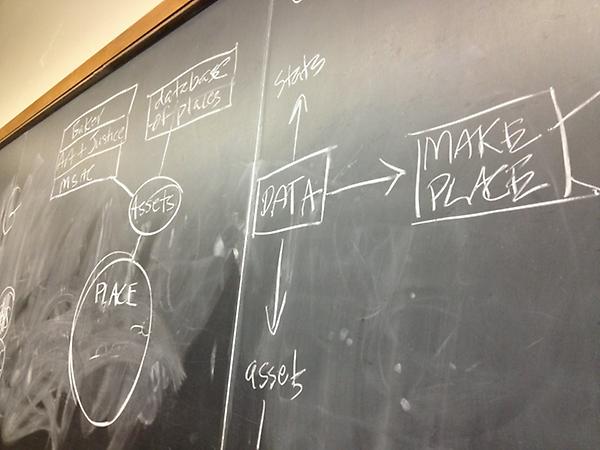 Baker
Art + Justice
MSAC
database
of places
Assets
PLACE
stats
DATA
assets
MAKE
PLACE